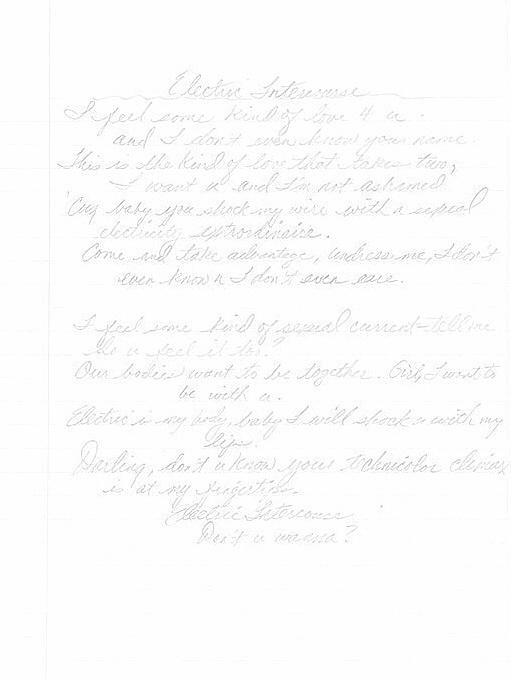 Electric Intercourse
I feel some kind of love 4 u.
and I don't even know your name.
This is the kind of love that takes two,
I want u and I'm not ashamed.
'Cuz baby you shock my wire with a sexual
electricity extrordinaire.
Come and take advantage, undress me, I don't
even know u I don't even care.
I feel some kind of sexual current-tell me
do u feel it too?
Our bodies want to be together. Girl, I want to
be with u.
Electric is my body, baby I will shock u with my
lips.
Darling, don't u know your technicolor climax
is at my fingertips.
Electric Intercourse
Don't u wanna?